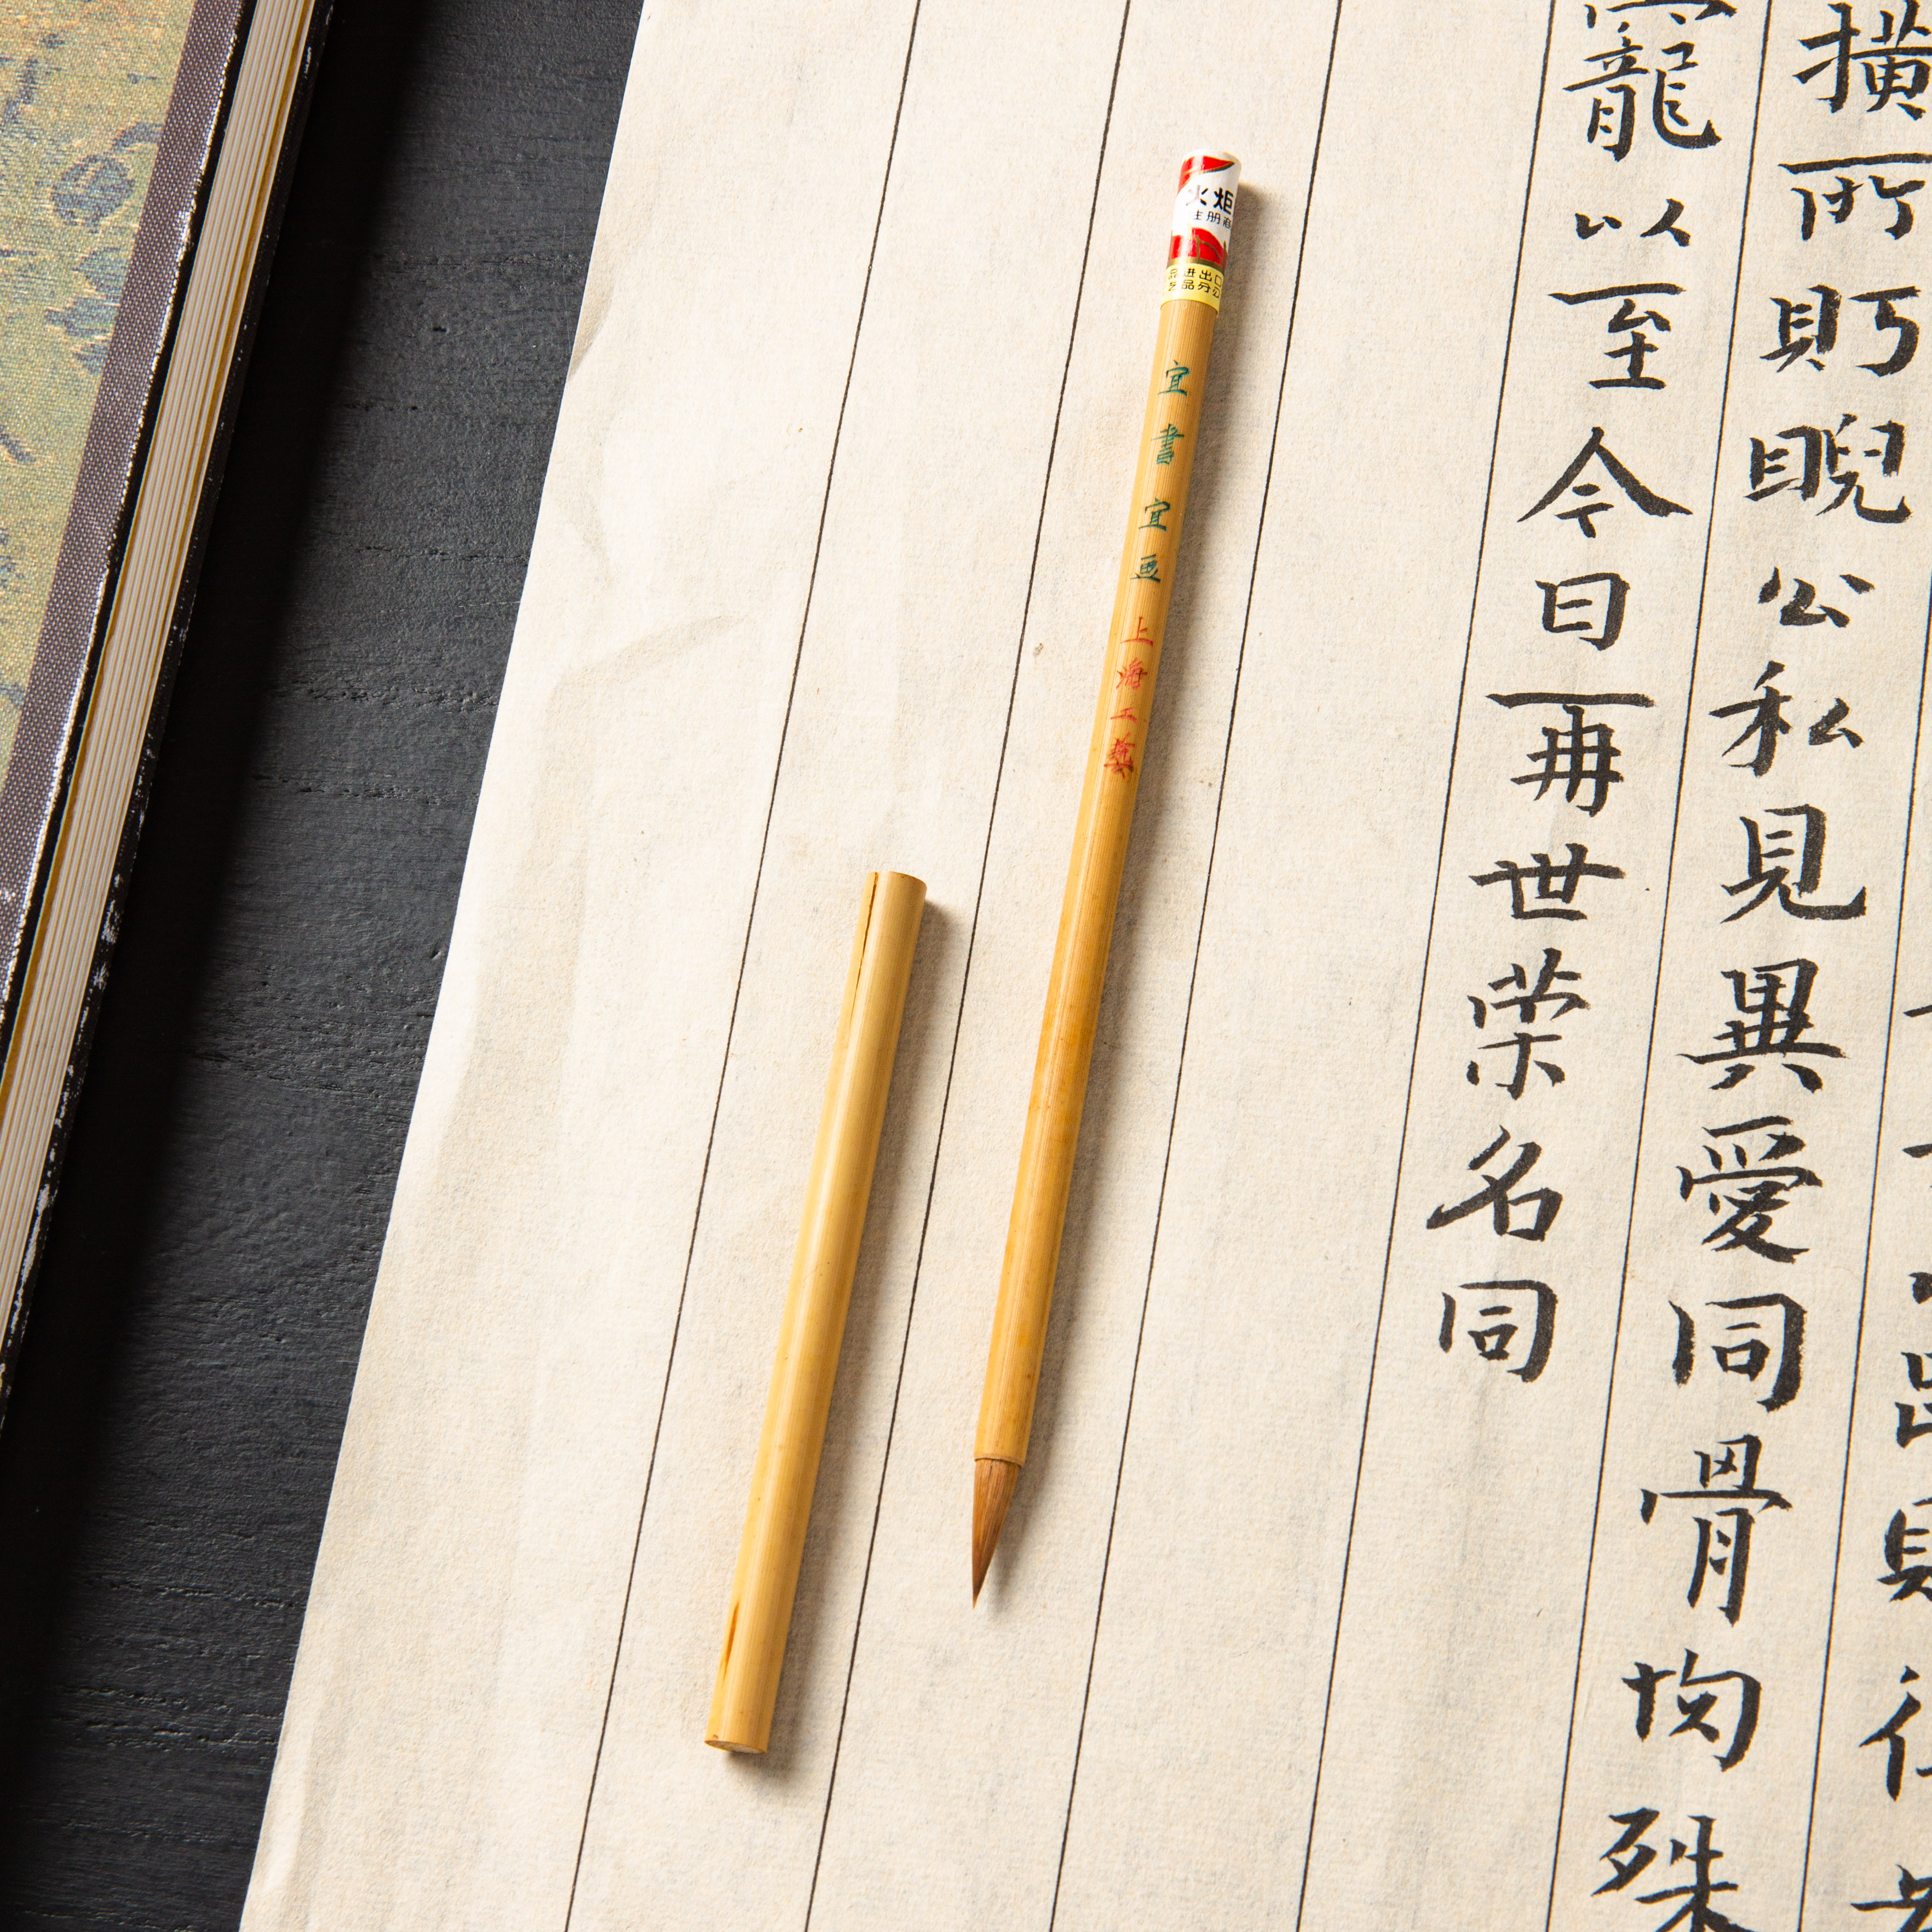 横所睨公私見異愛同骨均殊
寵以至今日再世荣名同
火炬
注册商
品进出口
艺品分公
宜書宜画上海工藝